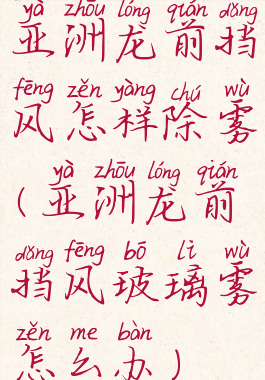 yà zhōu lóng qián dǎng
亚洲龙前挡
fēng zěn yàng chú wù
风怎样除雾
yà zhōu lóng qián
(亚洲龙前
dǎng fēng bō lí wù
挡风玻璃雾
zěn me bàn
怎么办)